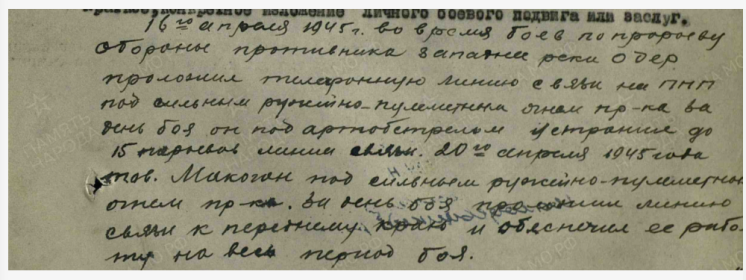 Краткое, конкретное изложение личного боевого подвига или заслуг.
16го апреля 1945г. во время боев по прорыву
обороны противника западнее реки Одер
проложил телефонную линию связи на ПНП
под сильным ружейно-пулеметным огнем пр-ка за
день боя он под артобстрелом устранил до
15 порывов линии связи. 20го апреля 1945 года
тов. Макоган под сильным ружейно-пулеметным
огнем пр-ка. За день боя проложил линию
связи к переднему краю и обеспечил ее рабо-
ту на весь период боя.